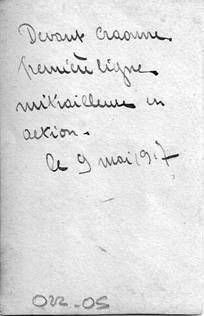 Devant Craonne
première ligne
mitrailleuse en
action -
le 9 mai 1917
022-05